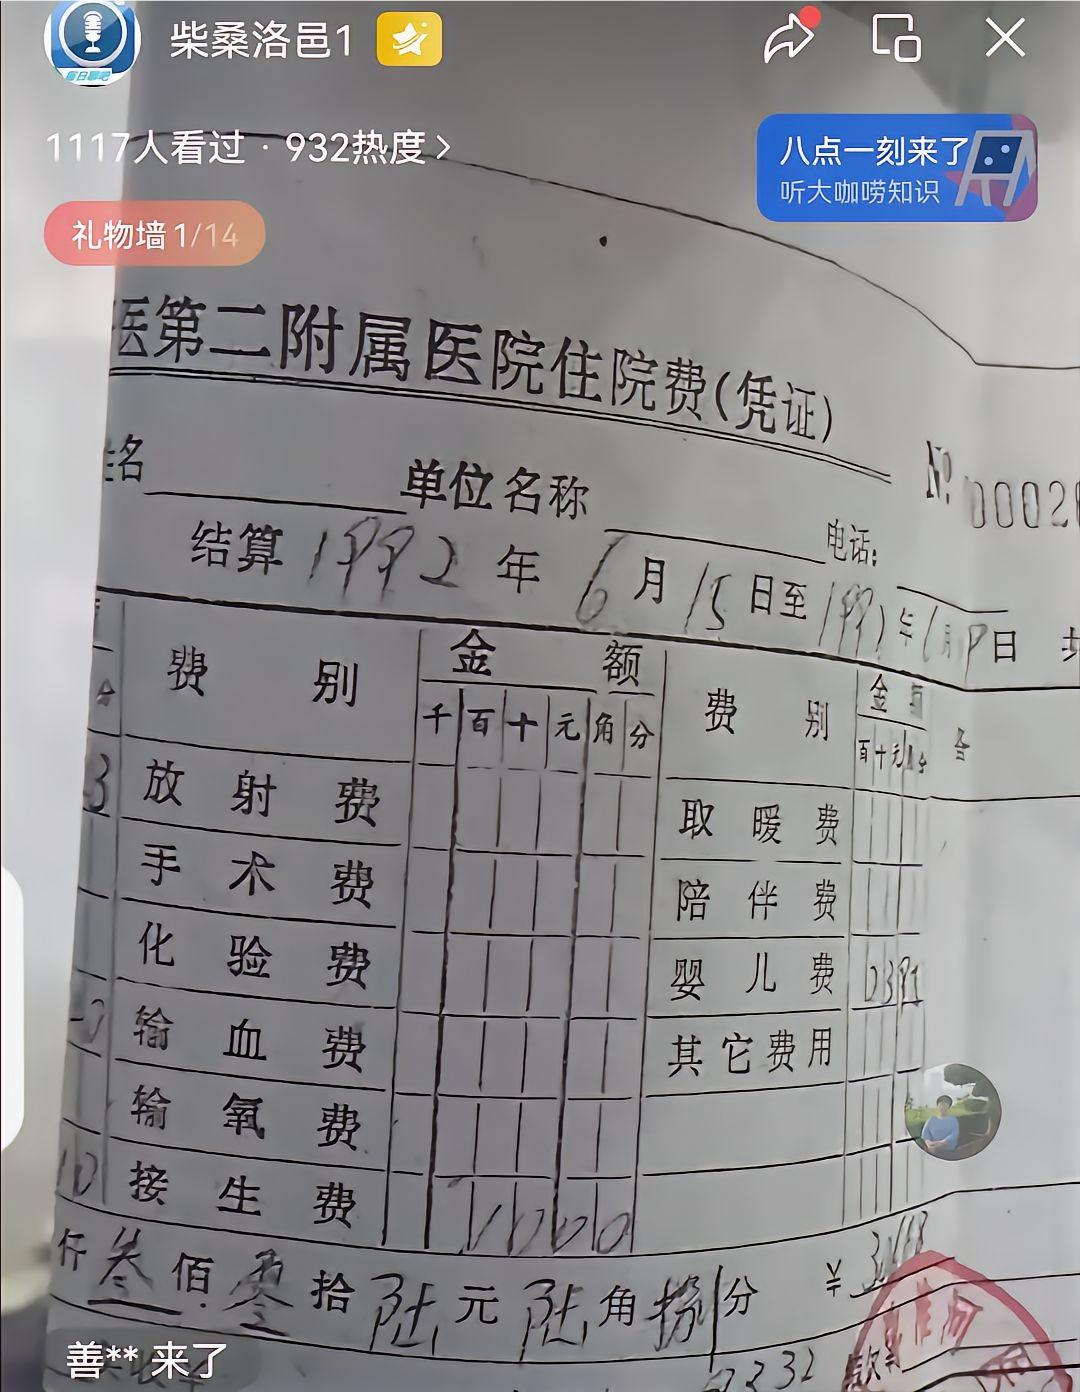 柴桑洛邑1
每日聊吧
1117人看过 · 932热度>
八点一刻来了
听大咖唠知识
礼物墙 1/14
医第二附属医院住院费(凭证)
名 单位名称 电话:
№ 0002
结算 1992 年 6 月 15 日至 199 年 6月 日 共
费别 金额 费别 金额
千 百 十 元 角 分 百 十 元 角 分
放射费 取暖费
手术费 陪伴费
化验费 婴儿费
输血费 其它费用
输氧费
接生费 1000
仟 叁 佰 零 拾 陆 元 陆 角 捌 分 ¥ 306.68
善** 来了
2332